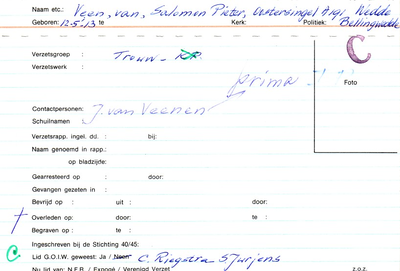 Naam etc.: Veen, van, Salomon Pieter, Oostersingel A191 Wedde
Geboren: 12.5.13 te Kerk: Politiek: Bellingwedde
C
Verzetsgroep : Trouw -
Verzetswerk :
prima
Foto
Contactpersonen: J. van Veenen
Schuilnamen :
Verzetsrapp. ingel. dd. : bij:
Naam genoemd in rapp.:
op bladzijde:
Gearresteerd op : door:
Gevangen gezeten in :
Bevrijd op : uit : door:
Overleden op: door: te :
Begraven op : te :
Ingeschreven bij de Stichting 40/45:
C Lid G.O.I.W. geweest: Ja / Neen C. Riegstra Sjurjens
Nu lid van: N.F.R. / Expogé / Verenigd Verzet z.o.z.